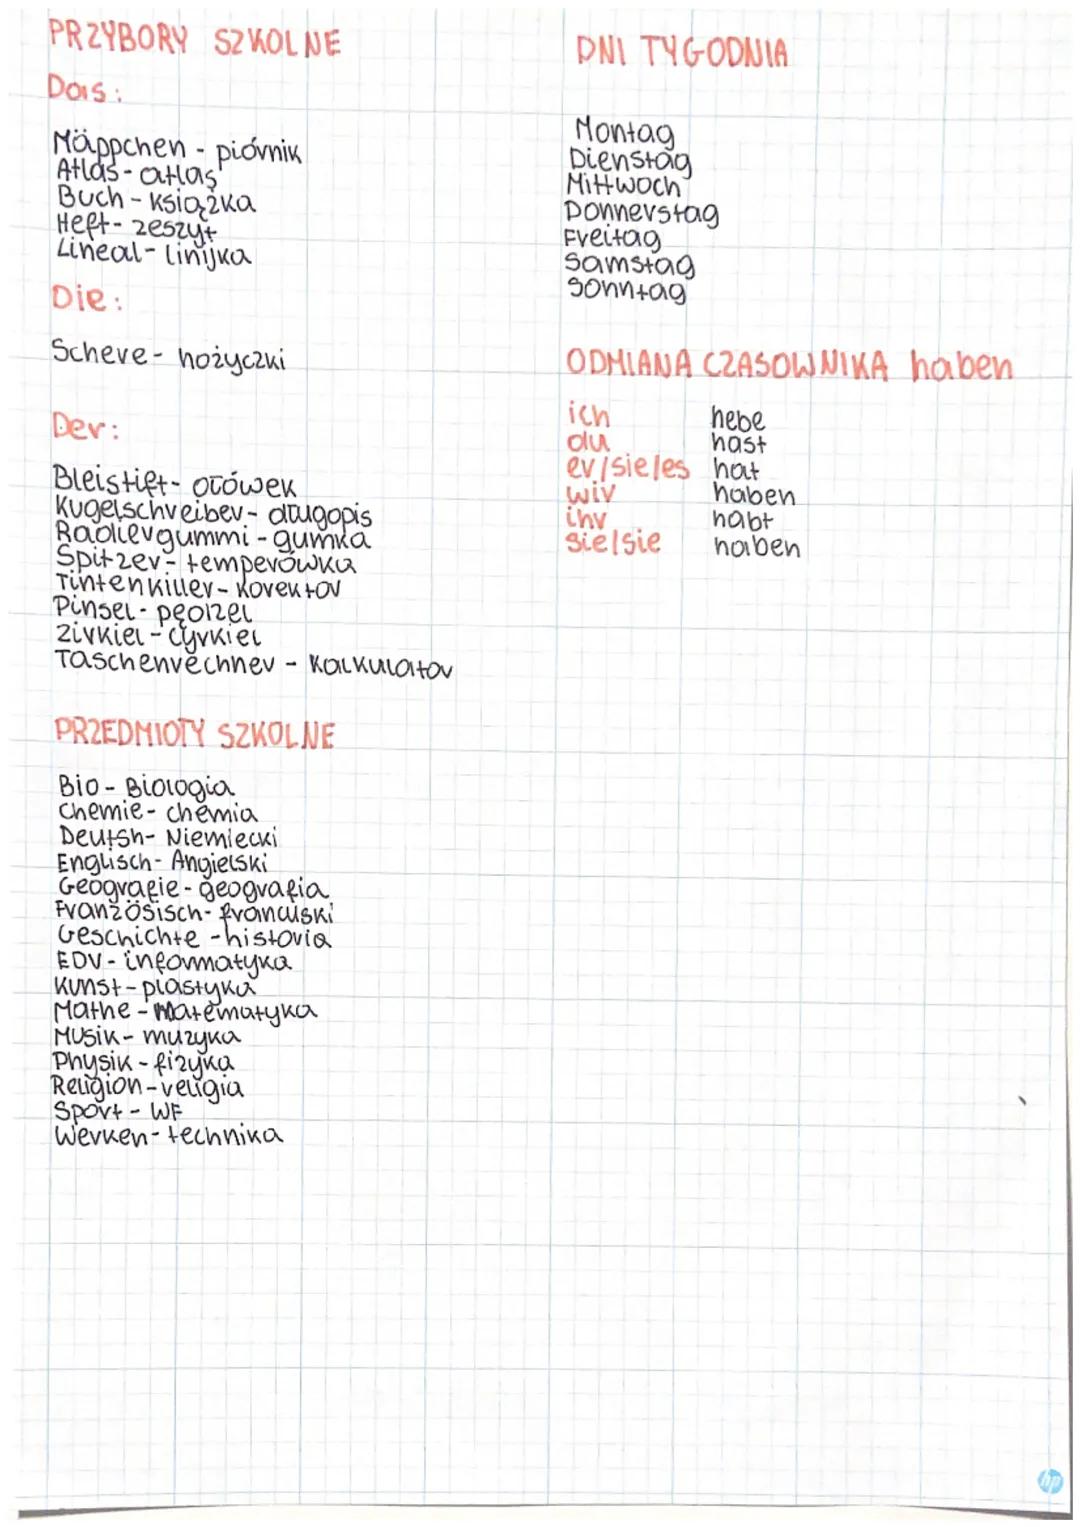 PRZYBORY SZKOLNE
Das:
Mäppchen - piórnik
Atlas - atlas
Buch - książka
Heft - zeszyt
Lineal - linijka
Die:
Schere - nożyczki
Der:
Bleistift - ołówek
Kugelschreiber - długopis
Radiergummi - gumka
Spitzer - temperówka
Tintenkiller - korektor
Pinsel - pędzel
Zirkiel - cyrkiel
Taschenrechner - kalkulator
PRZEDMIOTY SZKOLNE
Bio - Biologia
Chemie - chemia
Deutsh - Niemiecki
Englisch - Angielski
Geografie - geografia
Französisch - francuski
Geschichte - historia
EDV - informatyka
Kunst - plastyka
Mathe - matematyka
Musik - muzyka
Physik - fizyka
Religion - religia
Sport - WF
Werken - technika
DNI TYGODNIA
Montag
Dienstag
Mittwoch
Donnerstag
Freitag
Samstag
Sonntag
ODMIANA CZASOWNIKA haben
ich hebe
du hast
er/sie/es hat
wir haben
ihr habt
sie/sie haben
hp